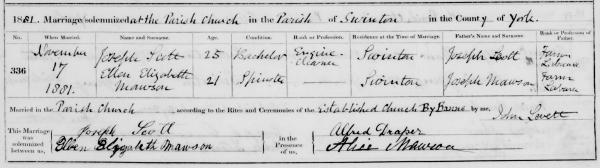 1881. Marriage solemnized at the Parish Church in the Parish of Swinton in the County of York.
No. When Married. Name and Surname. Age. Condition. Rank or Profession. Residence at the Time of Marriage. Father's Name and Surname. Rank or Profession of Father.
336 November 17 1881. Joseph Scott 25 Bachelor Engine Cleaner Swinton Joseph Scott Farm Labourer
Ellen Elizabeth Mawson 21 Spinster Swinton Joseph Mawson Farm Labourer
Married in the Parish Church according to the Rites and Ceremonies of the Established Church By Banns by me, John Levett
This Marriage was solemnized between us, Joseph Scott Ellen Elizabeth Mawson in the Presence of us, Alfred Draper Alice Mawson